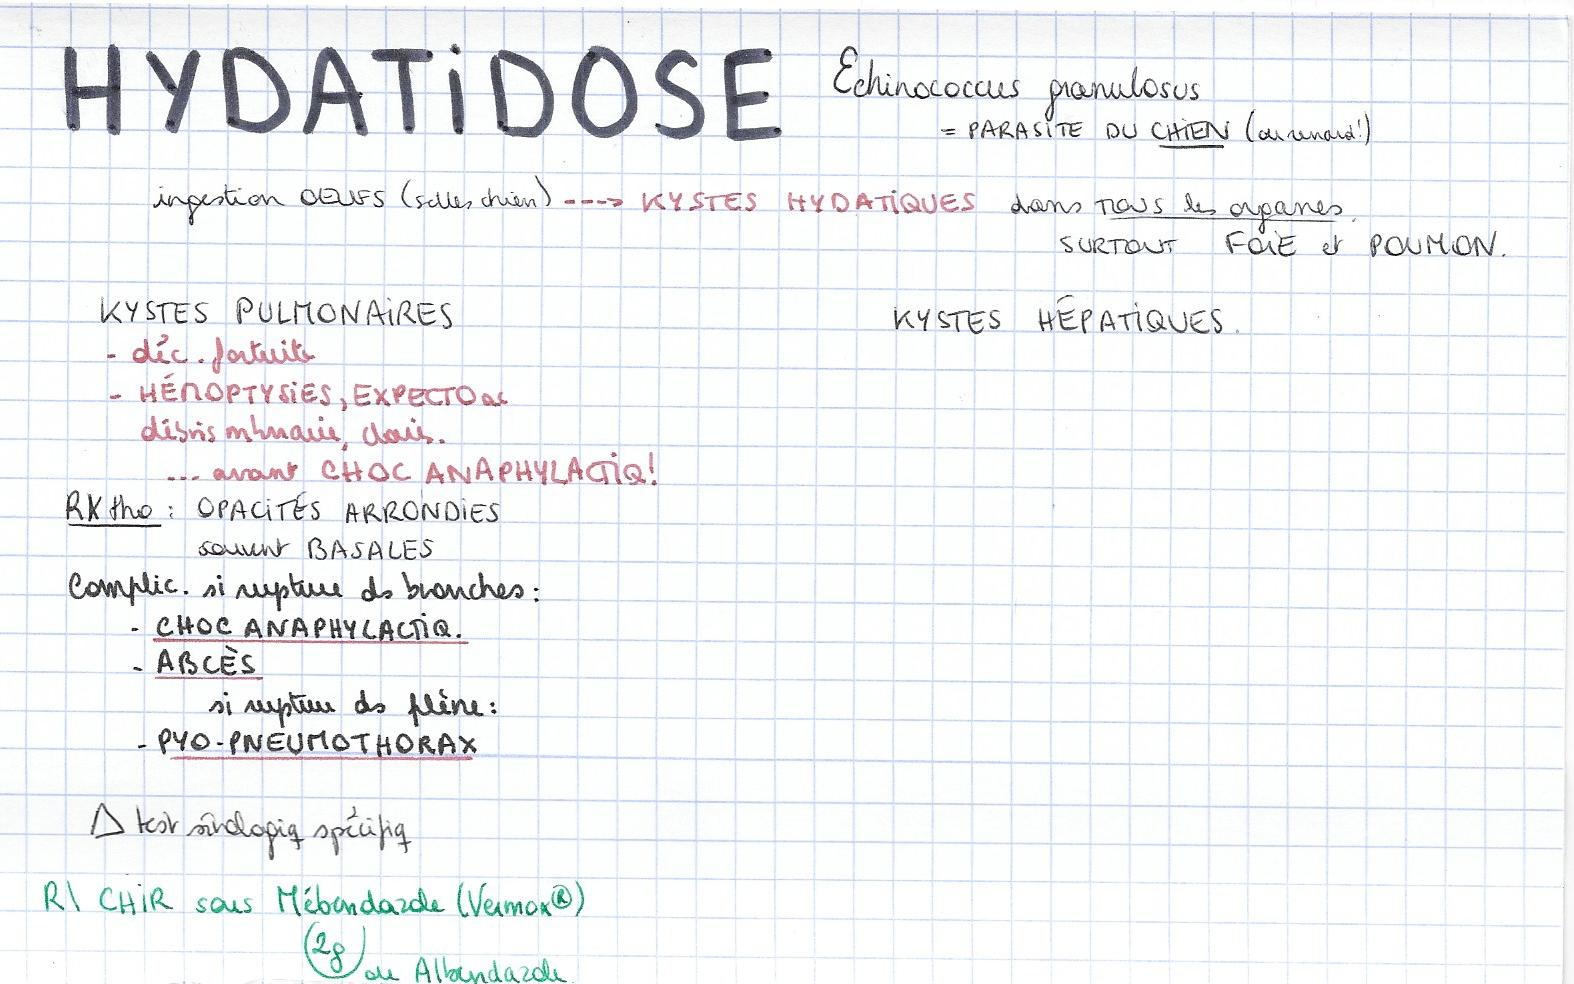 HYDATiDOSE
Echinococcus granulosus
= PARASITE DU CHIEN (ou renard!)
ingestion OEUFS (selles chien) ---> KYSTES HYDATiQUES dans TOUS les organes.
SURTOUT FOiE et POUMON.
KYSTES PULMONAiRES
- déc. fortuite
- HÉMOPTYSiES, EXPECTO ac
débris mbnaire, clairs.
... avant CHOC ANAPHYLACTiQ!
RX tho : OPACiTÉS ARRONDiES
souvent BASALES
Complic. si rupture ds bronches :
- CHOC ANAPHYLACTiQ.
- ABCÈS
si rupture ds plèvre :
- PYO-PNEUMOTHORAX
Δ test sérologiq spécifiq
R\ CHiR sous Mébendazole (Vermox®)
2g
ou Albendazole
KYSTES HÉPATiQUES.